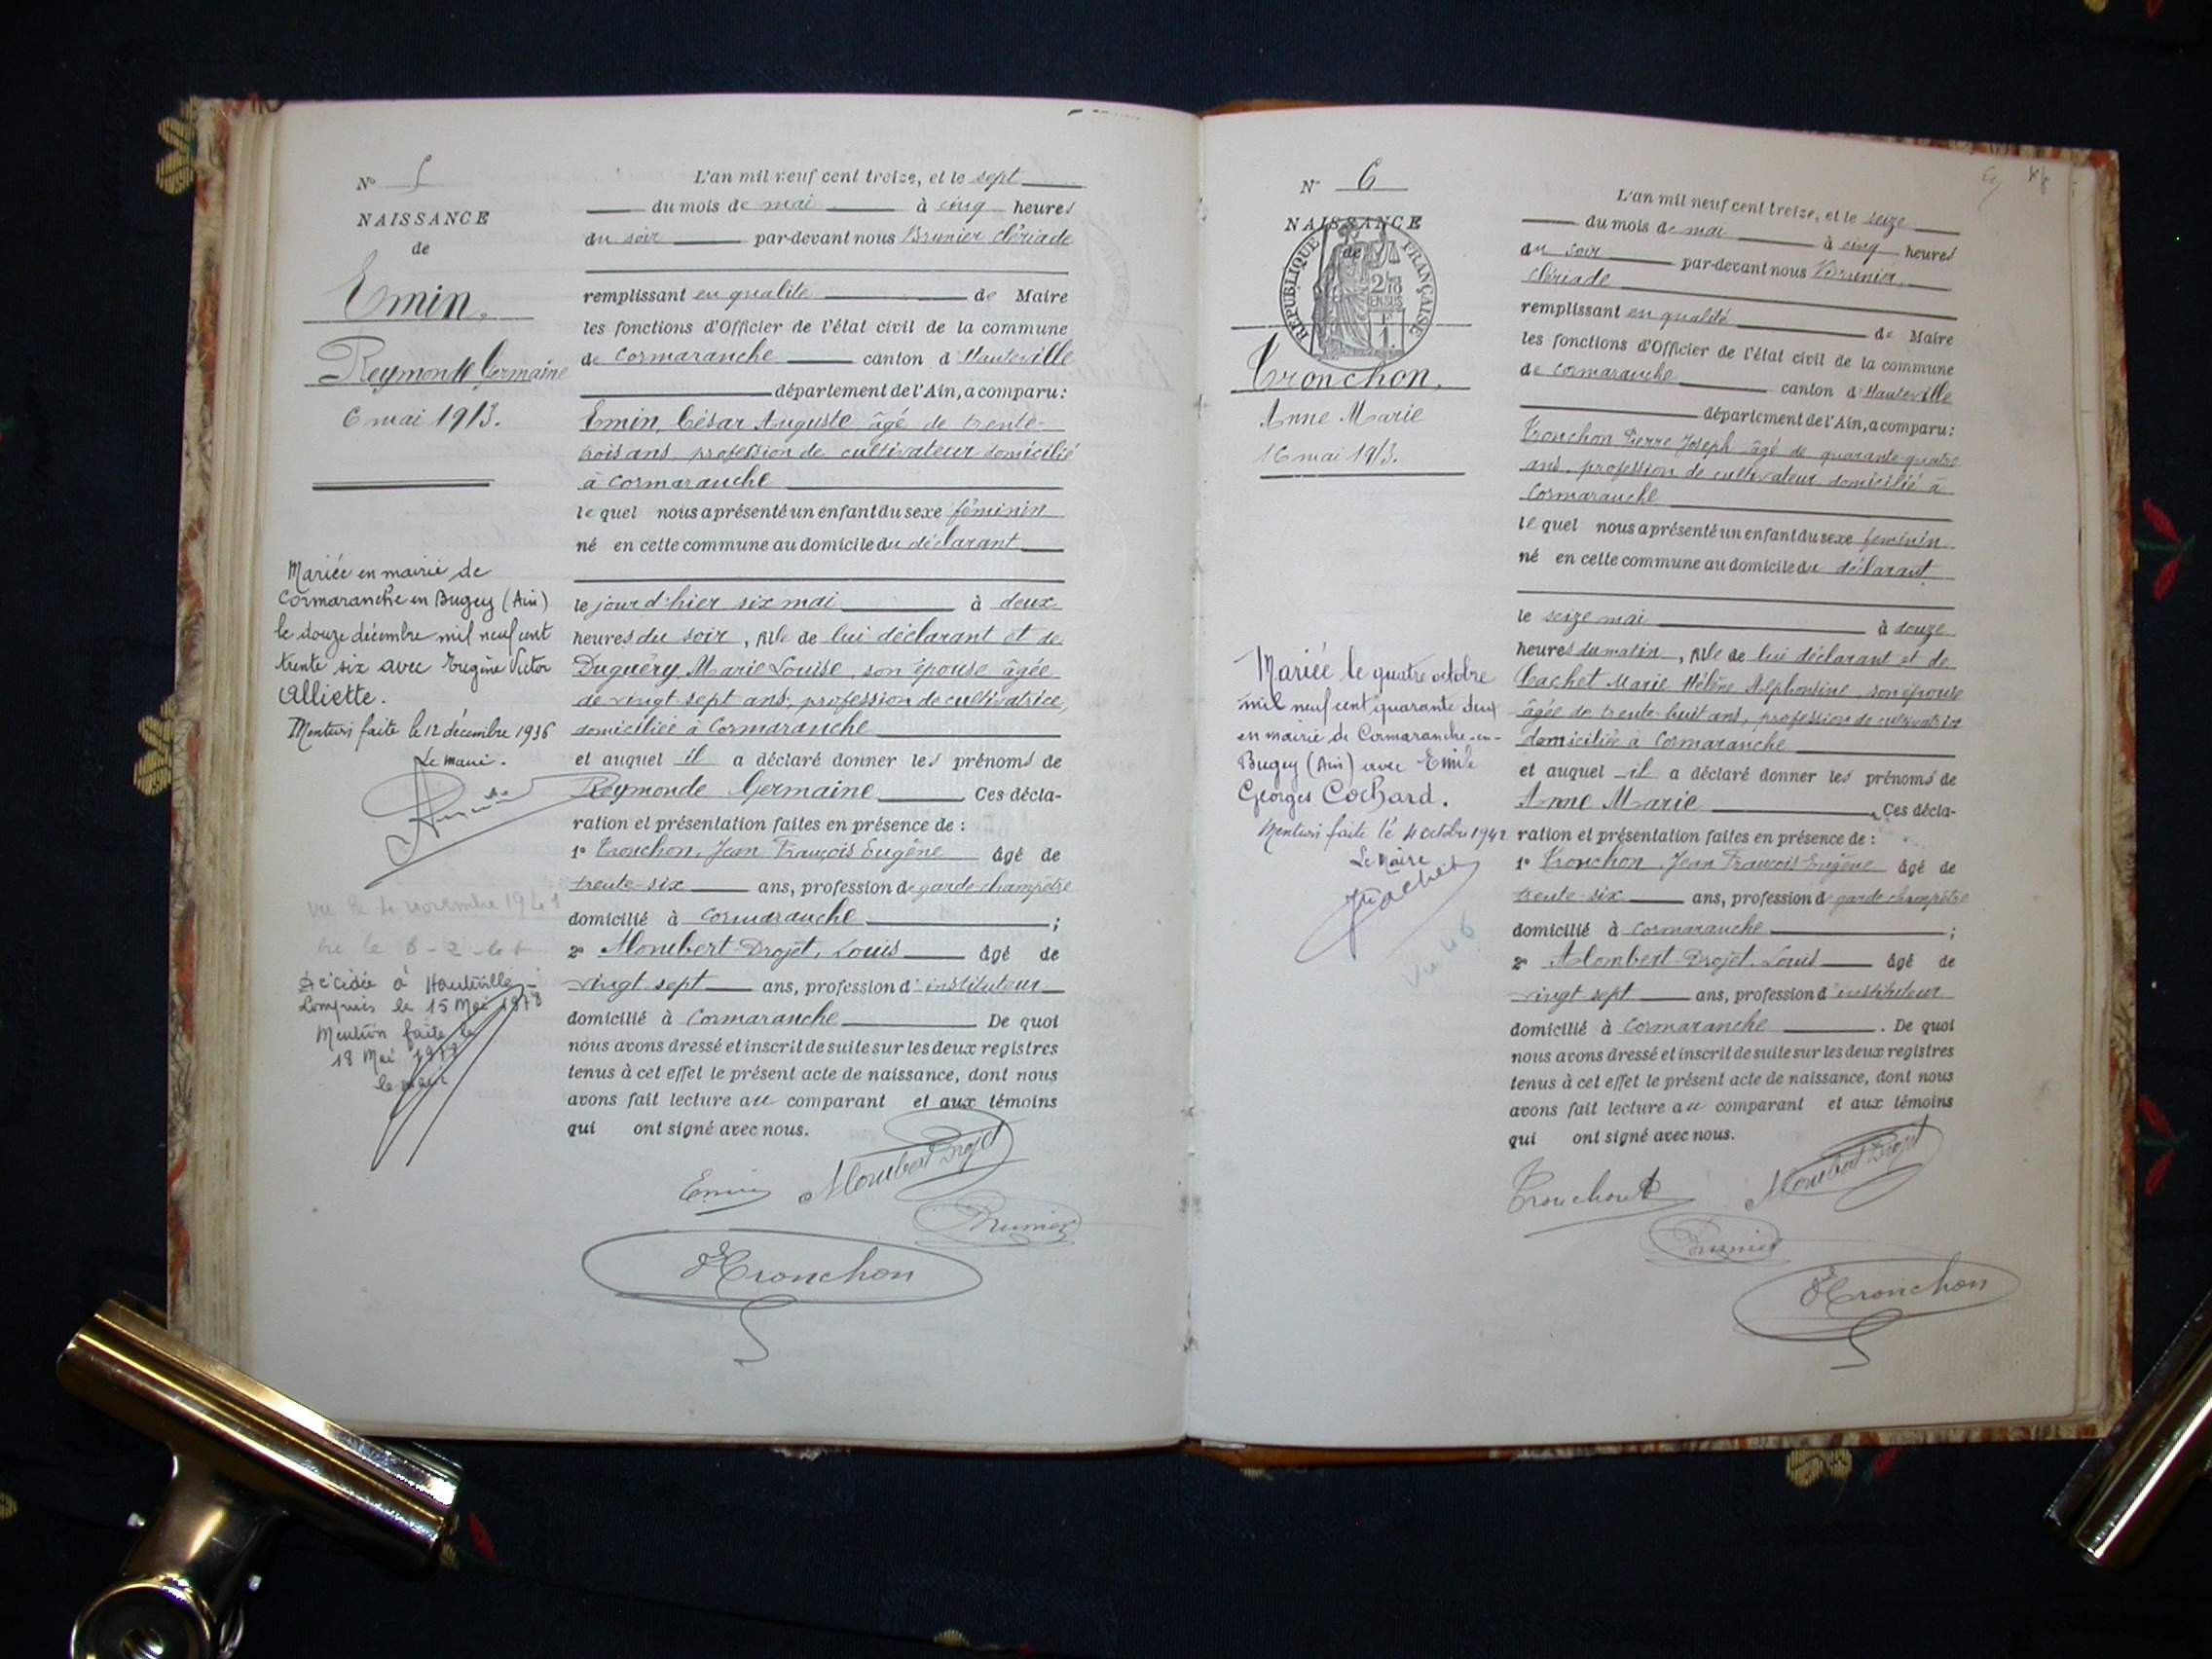 N° 5
NAISSANCE
de
Emin,
Reymonde Germaine
6 mai 1913.
Mariée en mairie de
Cormaranche en Bugey (Ain)
le douze décembre mil neuf cent
trente six avec Eugène Victor
Alliette.
Mention faite le 12 décembre 1936
Le maire.
vu le 4 novembre 1941
Décédée à Hauteville-
Lompnès le 15 Mai 1978
Mention faite le
18 Mai 1978
le maire
L'an mil neuf cent treize, et le sept
du mois de mai à cinq heures
du soir par-devant nous Brunier Cleriade
remplissant en qualité de Maire
les fonctions d'Officier de l'état civil de la commune
de Cormaranche canton d'Hauteville
département de l'Ain, a comparu:
Emin, César Auguste âgé de trente-
trois ans, profession de cultivateur domicilié
à Cormaranche
le quel nous a présenté un enfant du sexe féminin
né en cette commune au domicile du déclarant
le jour d'hier six mai à deux
heures du soir, fille de lui déclarant et de
Duguéry, Marie Louise, son épouse âgée
de vingt sept ans, profession de cultivatrice,
domiciliée à Cormaranche
et auquel il a déclaré donner les prénoms de
Reymonde Germaine Ces décla-
ration et présentation faites en présence de :
1° Tronchon, Jean François Eugène âgé de
trente-six ans, profession de garde-champêtre
domicilié à Cormaranche ;
2° Alombert-Drojet, Louis âgé de
vingt sept ans, profession d'instituteur
domicilié à Cormaranche De quoi
nous avons dressé et inscrit de suite sur les deux registres
tenus à cet effet le présent acte de naissance, dont nous
avons fait lecture au comparant et aux témoins
qui ont signé avec nous.
Emin Alombert Drojet
Brunier
Tronchon
N° 6
NAISSANCE
de
REPUBLIQUE FRANÇAISE
2/10
EN SUS
1F
Tronchon,
Anne Marie
16 mai 1913.
Mariée le quatre octobre
mil neuf cent quarante deux
en mairie de Cormaranche-en-
Bugey (Ain) avec Emile
Georges Cochard.
Mention faite le 4 octobre 1942
Le Maire
Vu 46
L'an mil neuf cent treize, et le seize
du mois de mai à cinq heures
du soir par-devant nous Brunier
Cleriade
remplissant en qualité de Maire
les fonctions d'Officier de l'état civil de la commune
de Cormaranche canton d'Hauteville
département de l'Ain, a comparu:
Tronchon Pierre Joseph âgé de quarante-quatre
ans, profession de cultivateur domicilié à
Cormaranche
le quel nous a présenté un enfant du sexe féminin
né en cette commune au domicile du déclarant
le seize mai à douze
heures du matin, fille de lui déclarant et de
Cachet Marie Hélène Alphonsine, son épouse
âgée de trente-huit ans, profession de cultivatrice
domiciliée à Cormaranche
et auquel il a déclaré donner les prénoms de
Anne Marie Ces décla-
ration et présentation faites en présence de :
1° Tronchon, Jean François Eugène âgé de
trente-six ans, profession de garde champêtre
domicilié à Cormaranche ;
2° Alombert-Drojet, Louis âgé de
vingt sept ans, profession d'instituteur
domicilié à Cormaranche . De quoi
nous avons dressé et inscrit de suite sur les deux registres
tenus à cet effet le présent acte de naissance, dont nous
avons fait lecture au comparant et aux témoins
qui ont signé avec nous.
Tronchon Alombert Drojet
Brunier
Tronchon